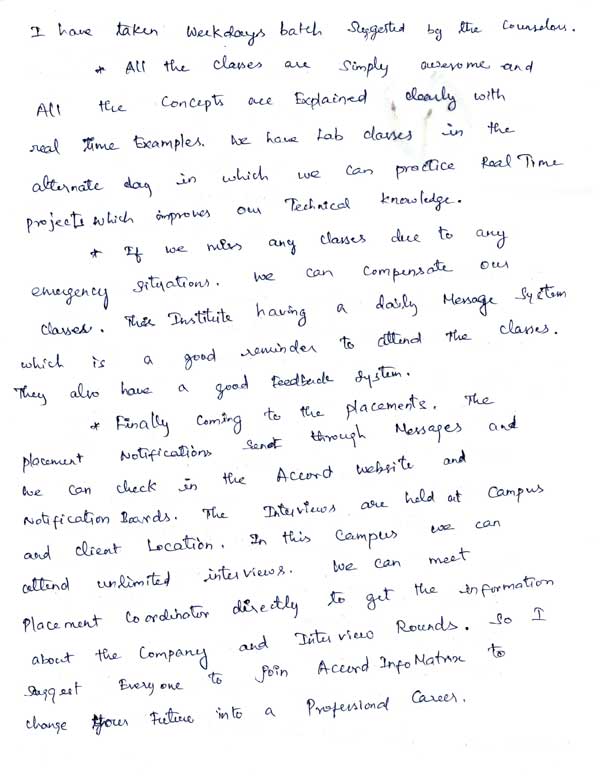 I have taken Weekdays batch Suggested by the Counselour.
* All the classes are Simply awesome and
All the Concepts are Explained clearly with
real time Examples. We have Lab classes in the
alternate day in which we can practice Real Time
projects which improves our Technical knowledge.
* If we miss any classes due to any
emergency situations. We can compensate our
classes. This Institute having a daily Message System
which is a good reminder to attend the classes.
They also have a good Feedback System.
* Finally Coming to the placements. The
placement Notifications Send through Messages and
we can check in the Accord website and
Notification Boards. The Interviews are held at Campus
and client Location. In this Campus we can
attend unlimited interviews. We can meet
Placement Coordinator directly to get the information
about the Company and Interview Rounds. So I
suggest Everyone to Join Accord Info Matrix to
change your Future into a Professional Career.